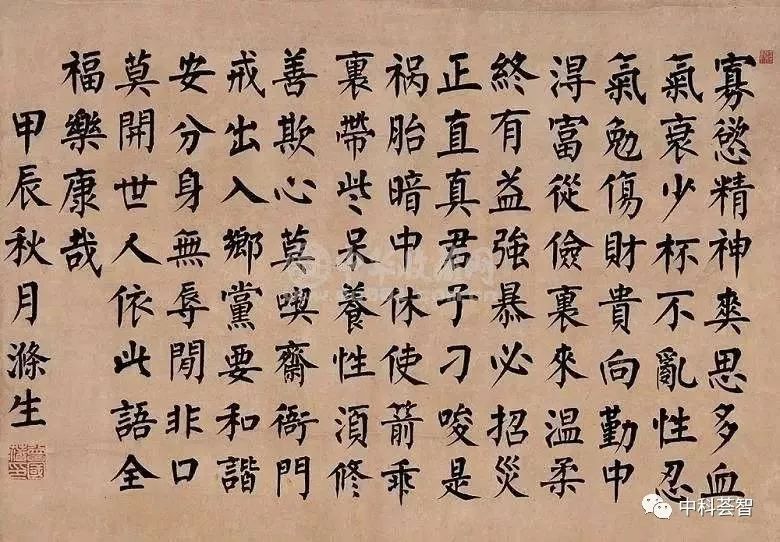 寡慾精神爽思多血
氣衰少杯不亂性忍
氣勉傷財貴向勤中
淂富從儉裏來温柔
終有益強暴必招災
正直真君子刁唆是
祸胎暗中休使箭乖
裏帶些呆養性湏修
善欺心莫喫齋衙門
戒出入鄉黨要和諧
安分身無辱閒非口
莫開世人依此語全
福樂康哉
甲辰秋月滌生
中科荟智